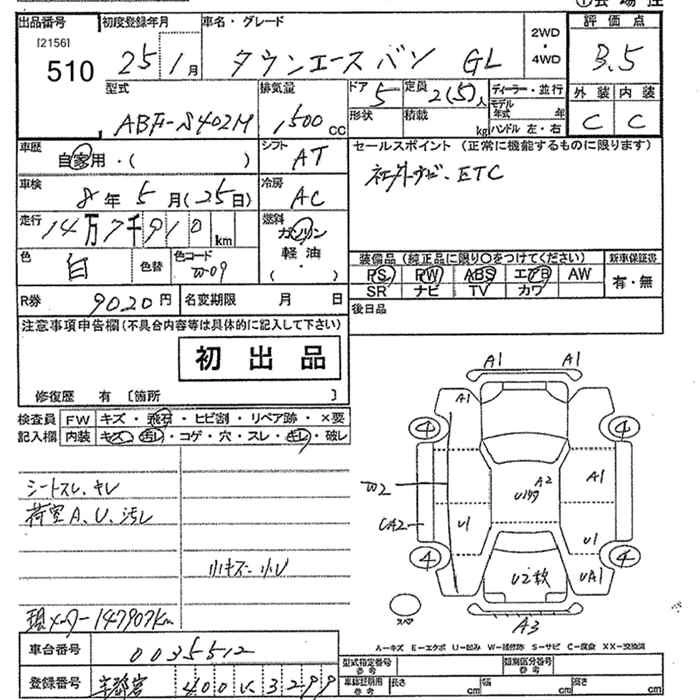 ①会場注
出品番号 初度登録年月 車名・グレード 2WD・4WD 評価点
[2156]
510 25 1月 タウンエースバン GL 3.5
型式 排気量 ドア 5 定員 2(5)人 ディーラー・並行 外装 内装
ABF-S402M 1500cc 形状 積載 kg モデル年式 年 C C
ハンドル 左・右
車歴 自家用・( ) シフト AT セールスポイント (正常に機能するものに限ります)
車検 8年5月(25日) 冷房 AC 社外ナビ、ETC
走行 14万7千910km 燃料 ガソリン
軽油・( )
色 白 色替 色コード W09 装備品 (純正品に限り〇をつけてください) 新車保証書
PS PW ABS エアB AW 有・無
SR ナビ TV カワ
R券 9020円 名変期限 月 日 後日品
注意事項申告欄(不具合内容等は具体的に記入して下さい)
初出品
修復歴 有 [箇所 ]
検査員 FW キズ・飛石・ヒビ割・リペア跡・×要
記入欄 内装 キズ・汚レ・コゲ・穴・スレ・キレ・破レ
シートスレ、キレ
荷室A、U、汚レ
小キズ・小U
現メーター147907km
A1 A1
A1
4 4
W2 A2 A1
UA2 U1 U1
4 4
U2 UA1
スペア
A3
A-キズ E-エクボ U-凹み W-補修跡 S-サビ C-腐食 XX-交換済
車台番号 0035512
型式指定番号 参考 類別区分番号 参考
登録番号 400 3299
車認証明用 参考 長さ cm 幅 cm 高さ cm